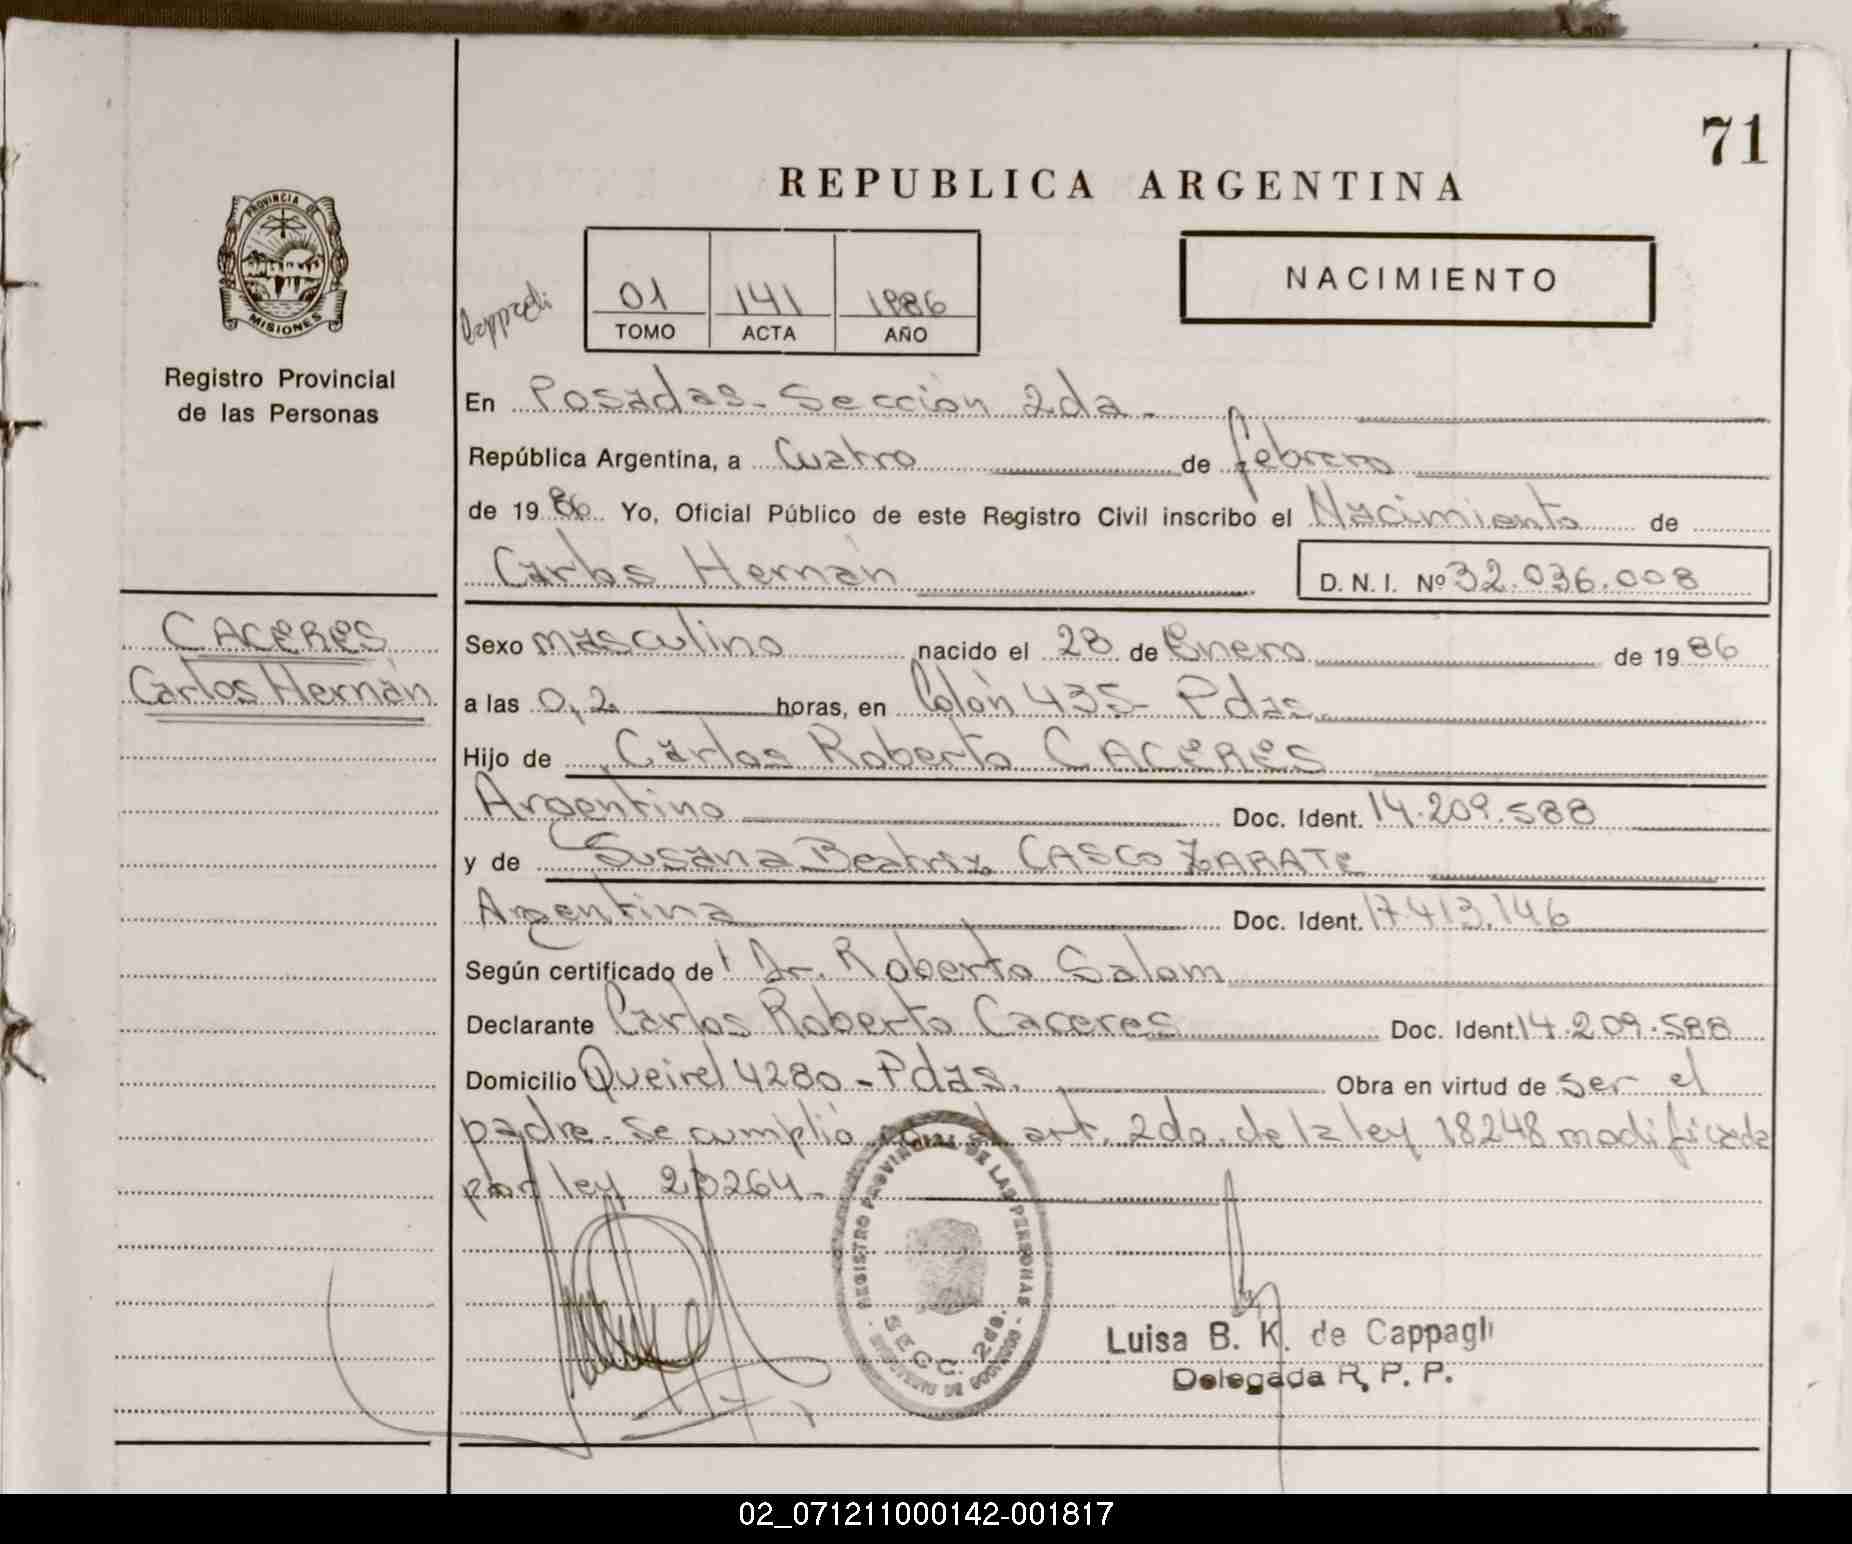 71
REPUBLICA ARGENTINA
PROVINCIA DE
MISIONES
Registro Provincial
de las Personas
01 141 1986
TOMO ACTA AÑO
NACIMIENTO
En Posadas - Sección 2da -
República Argentina, a Cuatro de febrero
de 1986 Yo, Oficial Público de este Registro Civil inscribo el Nacimiento de
Carlos Hernán D. N. I. Nº 32.036.008
CACERES
Carlos Hernán
Sexo masculino nacido el 28 de Enero de 1986
a las 0,2 horas, en Colón 435 - Pdas.
Hijo de Carlos Roberto CACERES
Argentino Doc. Ident. 14.209.588
y de Susana Beatriz CASCO ZARATE
Argentina Doc. Ident. 17.413.146
Según certificado de Dr. Roberto Salom
Declarante Carlos Roberto Caceres Doc. Ident. 14.209.588
Domicilio Queirel 4280 - Pdas. Obra en virtud de ser el
padre - Se cumplió art. 2do. de la ley 18248 modificada
por ley 23264 -
REGISTRO PROVINCIAL DE LAS PERSONAS
SECC. 2da.
Luisa B. K. de Cappagli
Delegada R. P. P.
02_071211000142-001817